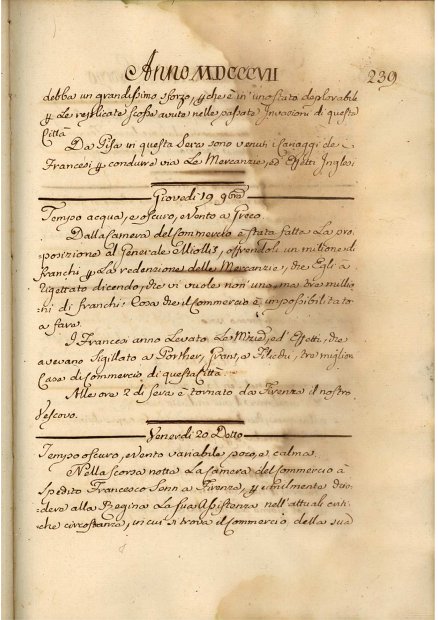 Anno MDCCCVII 239
debba un grandissimo sforzo, che è in uno stato deplorabile
Le replicate scosse avute nelle passate Invasioni di questa
Città
Da Pisa in questa Sera sono venuti i Canaggi de
Francesi condurre via Le Mercanzie, ed Effetti Inglesi
Giovedì 19 9bre
Tempo acqua, e oscuro, e Vento a Greco
Dalla Camera del Commercio è stata fatta La pro-
posizione al Generale Miollis, offrendoli un milione di
franchi La redenzione delle Mercanzie, che Egli à
rigettato dicendo, che vi vuole non uno, ma tre millio-
ni di franchi: Cosa che il Commercio è impossibilitato
a fare.
I Francesi anno Levato Le ed' Effetti, che
avevano Sigillato a Porther, Grant, a tre migliori
Case di Commercio di questa Città
Alle ore 2 di Sera è tornato da Firenza il nostro
Vescovo.
Venerdi 20 Detto
Tempo oscuro, e Vento variabile poco, e calma.
Nella scorsa notte La Camera del Commercio à
Spedito Francesco Senn a Firenza, umilmente chie-
dere alla Regina La Sua Assistenza nell'attuali criti-
che circostanze, in cui si trova il Commercio della sua